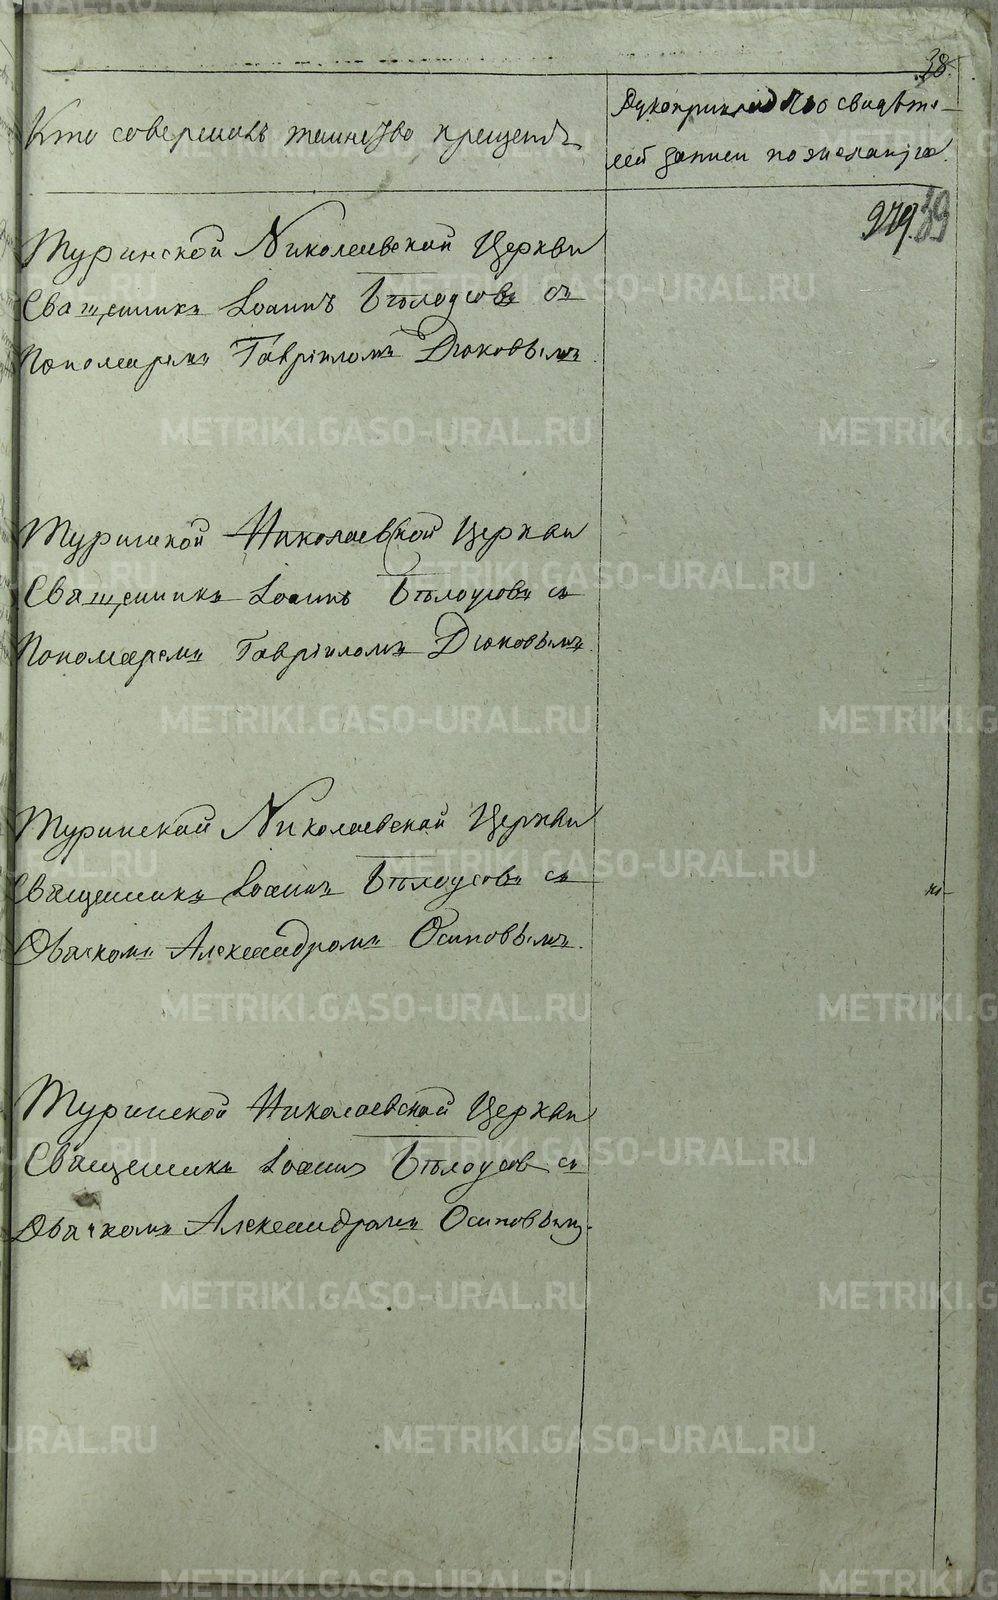 38.
Кто совершалъ таинство крещенія
Рукоприкладство свидѣте-
лей записи по желанію.
979. 39
Туринской Николаевской Церкви
Священникъ Іоаннъ Бѣлоусовъ съ
Пономаремъ Гавріиломъ Дюковымъ.
Туринской Николаевской Церкви
Священникъ Іоаннъ Бѣлоусовъ съ
Пономаремъ Гавріиломъ Дюковымъ.
Туринской Николаевской Церкви
Священникъ Іоаннъ Бѣлоусовъ съ
Дьячкомъ Александромъ Осиповымъ.
Туринской Николаевской Церкви
Священникъ Іоаннъ Бѣлоусовъ съ
Дьячкомъ Александромъ Осиповымъ.
METRIKI.GASO-URAL.RU